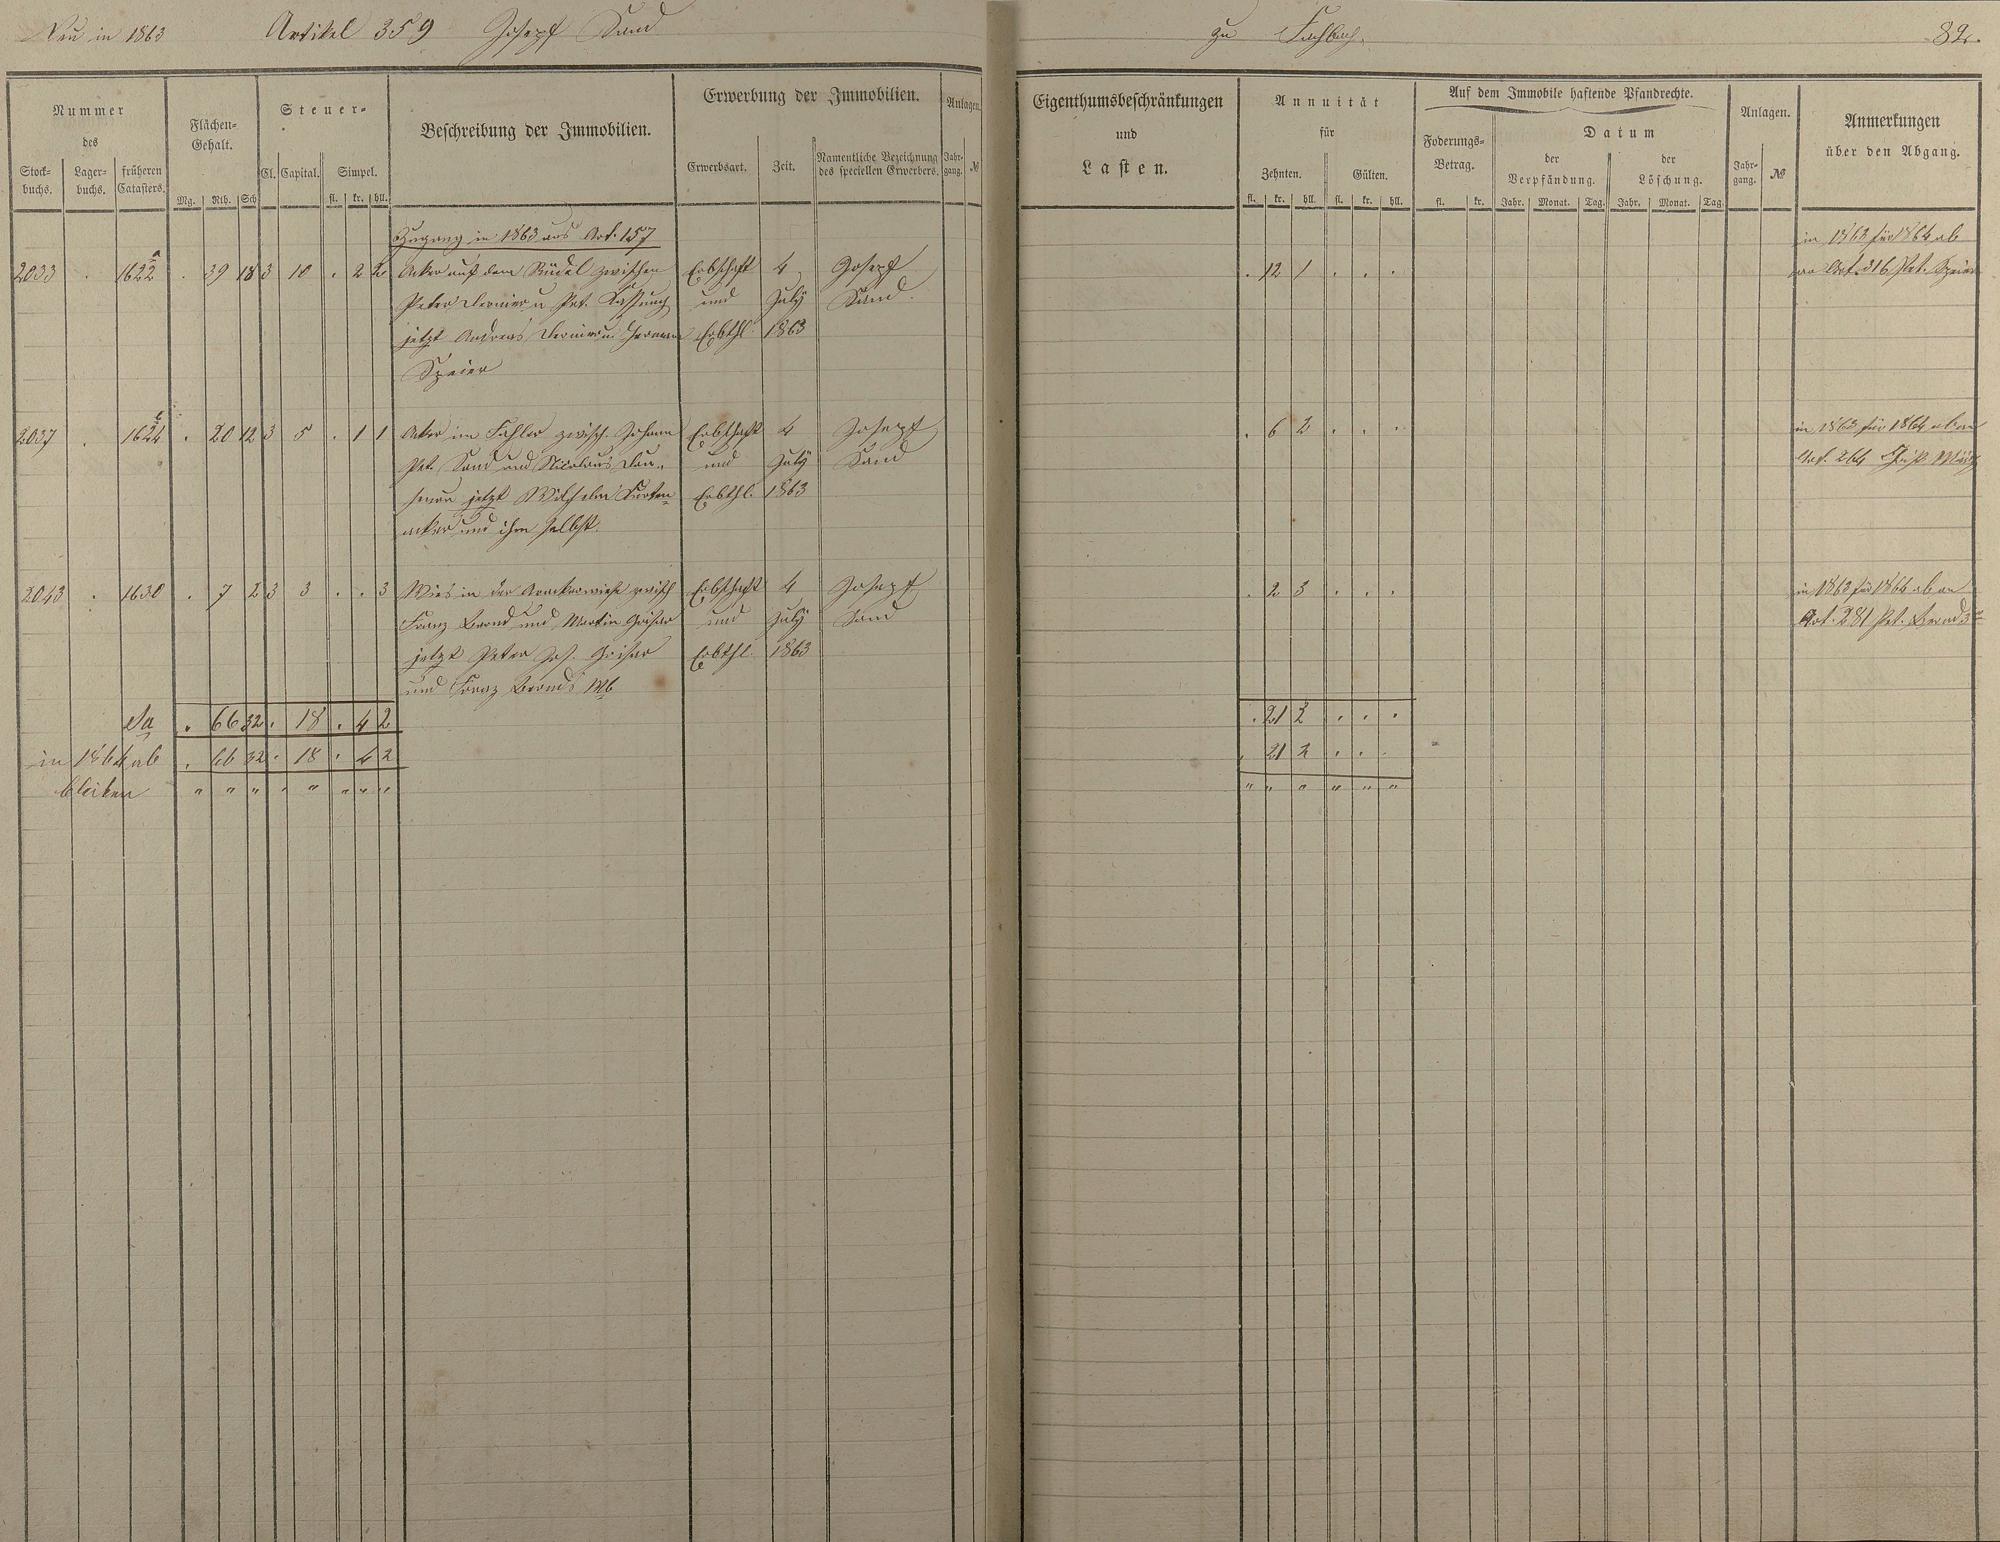 Neu in 1863 Artikel 359 Joseph Sand zu Fachbach. 82.
Nummer
des
Stock-buchs. Lager-buchs. früheren Catasters.
Flächen-Gehalt.
Mg. Rth. Sch
Steuer-
Cl. Capital. Simpel.
fl. kr. hll.
Beschreibung der Immobilien.
Erwerbung der Immobilien.
Erwerbsart. Zeit. Namentliche Bezeichnung des speciellen Erwerbers.
Anlagen.
Jahr-gang. №
Eigenthumsbeschränkungen
und
Lasten.
Annuität
für
Zehnten. Gülten.
fl. kr. hll. fl. kr. hll.
Auf dem Immobile haftende Pfandrechte.
Foderungs-Betrag.
fl. kr.
Datum
der Verpfändung. der Löschung.
Jahr. Monat. Tag. Jahr. Monat. Tag.
Anlagen.
Jahr-gang. №
Anmerkungen
über den Abgang.
Zugang in 1863 aus Art. 157 in 1863 für 1864 ab
2033 . 1622 a . 39 18 3 10 . 2 2 Acker auf dem Rüdel zwischen Erbschaft 4 Joseph . 12 1 . . . an Art. 316 Pet. Speier
Peter Dernier u Pet. und July Sand.
jetzt Andreas Dernier u. Herman Erbthl. 1863
Speier
2037 . 1624 . 20 12 3 5 . 1 1 Acker im Fahler zwisch. Johann Erbschaft 4 Joseph . 6 2 . . . in 1863 für 1864 ab an
Pet. Sand und Nicolaus und July Sand Art. 264
jetzt Wilhelm Erbthl. 1863
acker und ihm selbst.
2043 . 1630 . 7 2 3 3 . . 3 Wies in der zwisch Erbschaft 4 Joseph . 2 3 . . . in 1863 für 1864 ab an
Franz Brand und Martin und July Sand Art. 281 Pet.
jetzt Peter Jos. Erbthl. 1863
und Franz
Sa . 66 32 . 18 . 4 2 . 21 2 . . .
in 1864 ab . 66 32 . 18 . 4 2 . 21 2 . . .
bleiben " " " " " " " " " " " " " "